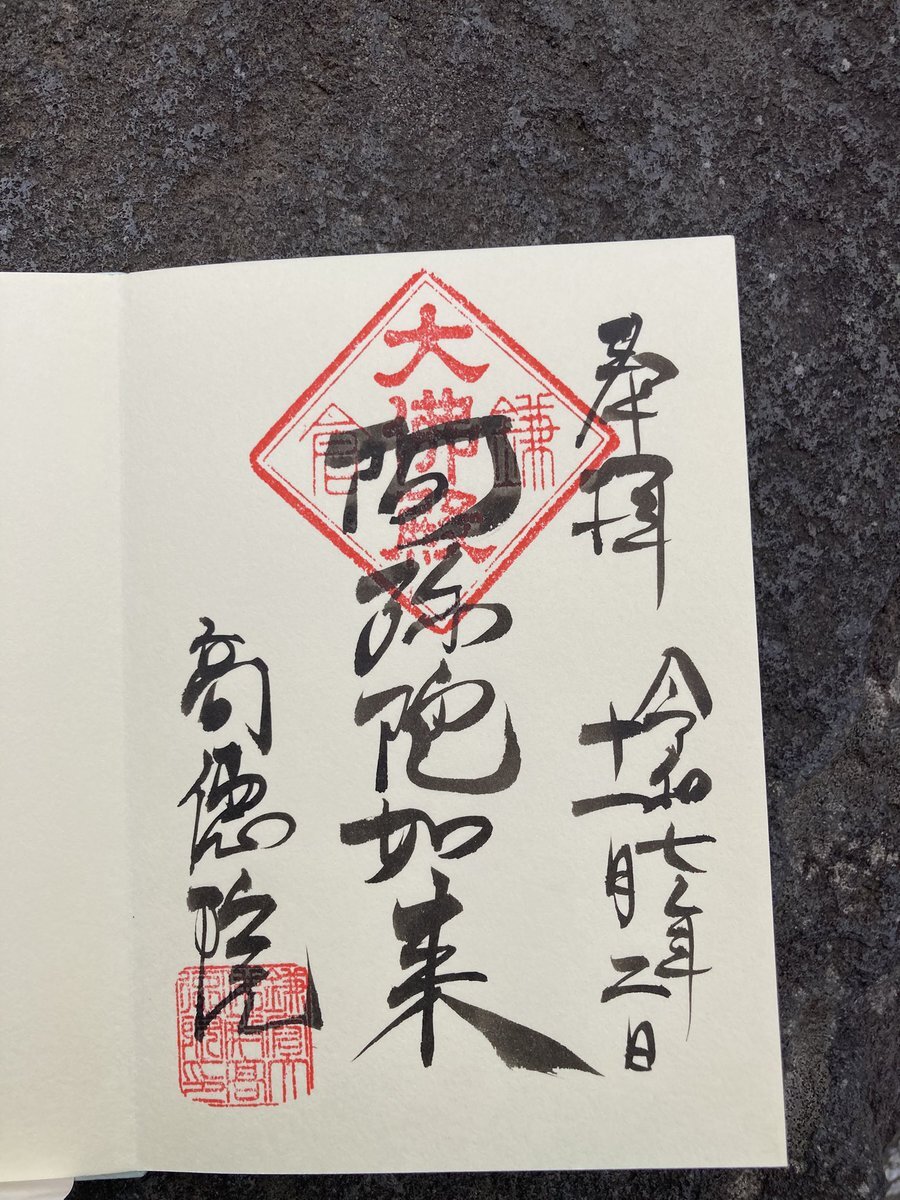 奉拝
令和七年
十一月二日
大佛殿
鎌倉
阿弥陀如来
高徳院